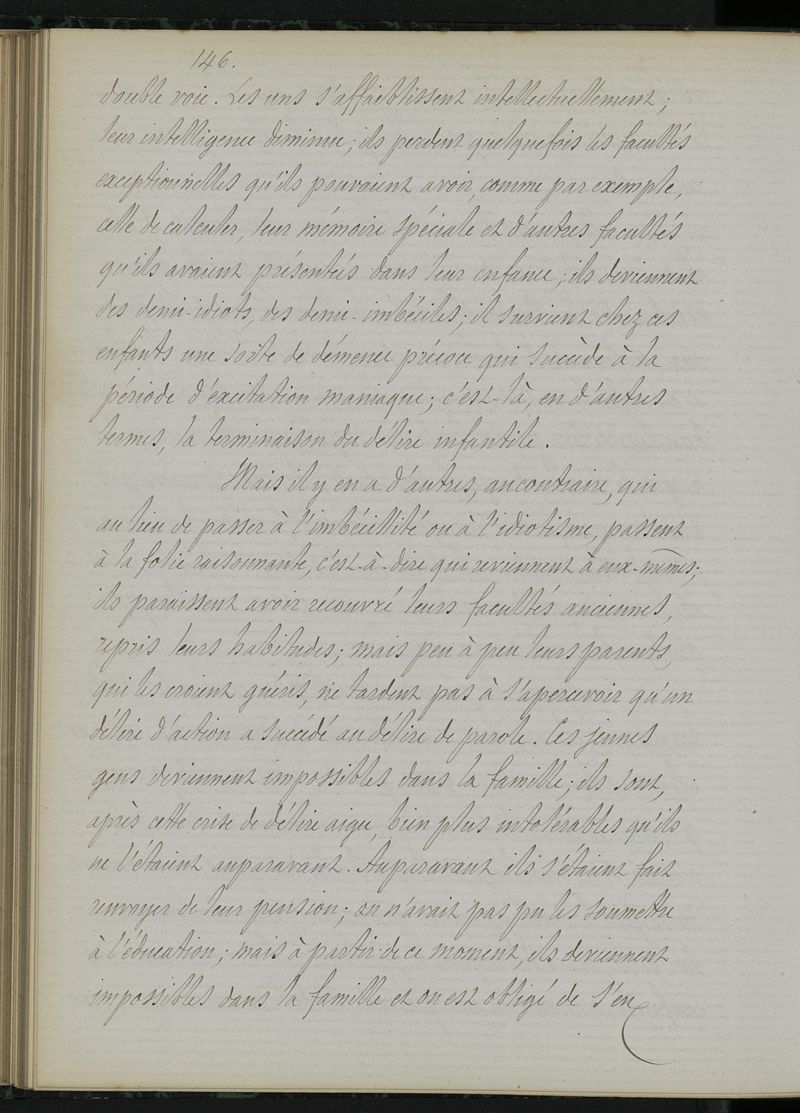 146.
double voie. Les uns s'affaiblissent intellectuellement ;
leur intelligence diminue ; ils perdent quelquefois les facultés
exceptionnelles qu'ils pouvaient avoir, comme par exemple,
celle de calculer, leur mémoire spéciale et d'autres facultés
qu'ils avaient présentés dans leur enfance ; ils deviennent
des demi-idiots, des demi-imbéciles ; il survient chez ces
enfants une sorte de démence précoce qui succède à la
période d'excitation maniaque ; c'est-là, en d'autres
termes, la terminaison du délire infantile.
Mais il y en a d'autres, au contraire, qui
au lieu de passer à l'imbécillité ou à l'idiotisme, passent
à la folie raisonnante, c'est-à-dire qui reviennent à eux-mêmes ;
ils paraissent avoir recouvré leurs facultés anciennes,
repris leurs habitudes ; mais peu à peu leurs parents,
qui les croient guéris, ne tardent pas à s'apercevoir qu'un
délire d'action a succédé au délire de parole. Ces jeunes
gens deviennent impossibles dans la famille ; ils sont,
après cette crise de délire aigu, bien plus intolérables qu'ils
ne l'étaient auparavant. Auparavant ils s'étaient fait
renvoyer de leur pension ; on n'avait pas pu les soumettre
à l'éducation ; mais à partir de ce moment, ils deviennent
impossibles dans la famille et on est obligé de s'en